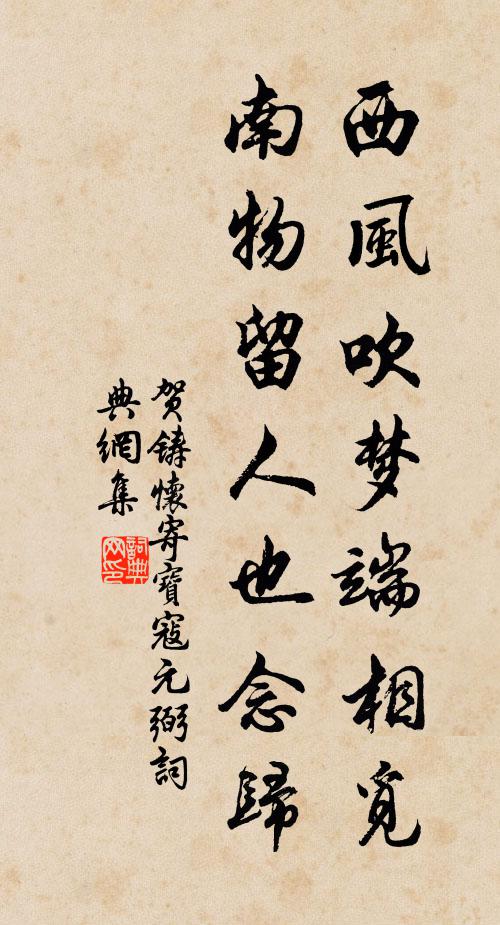 西風吹梦端相覓
南物留人也念歸
贺鑄懷寄寶寇元弼詞
典網集
詞典网印